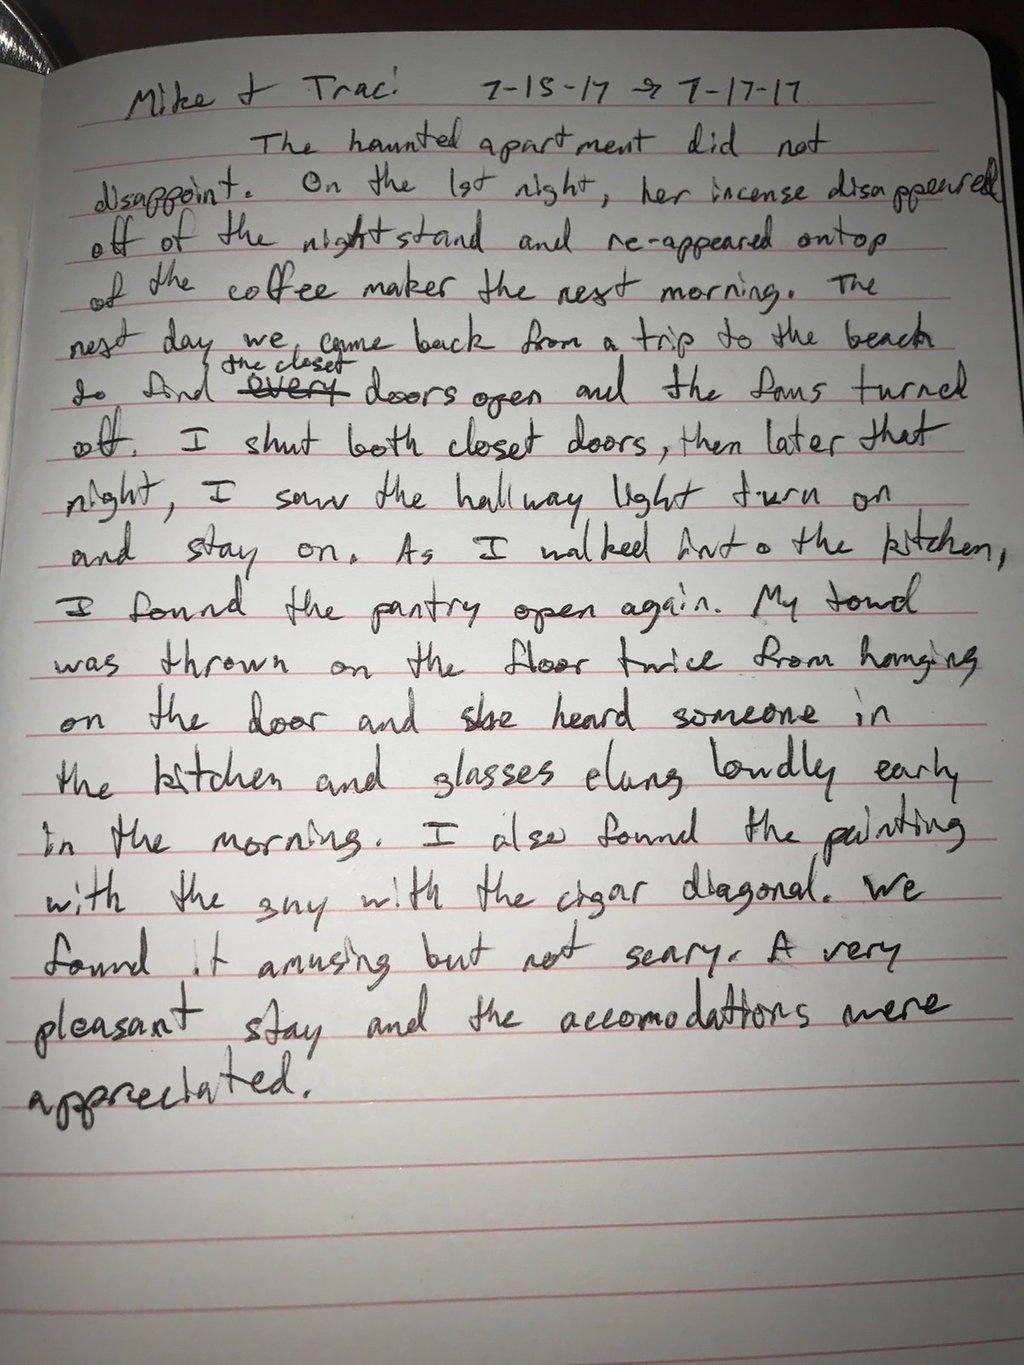 Mike & Traci 7-15-17 → 7-17-17
The haunted apartment did not
disappoint. On the 1st night, her incense disappeared
off of the nightstand and re-appeared ontop
of the coffee maker the next morning. The
next day we came back from a trip to the beach
to find the closet doors open and the fans turned
off. I shut both closet doors, then later that
night, I saw the hallway light turn on
and stay on. As I walked into the kitchen,
I found the pantry open again. My towel
was thrown on the floor twice from hanging
on the door and she heard someone in
the kitchen and glasses clung loudly early
in the morning. I also found the painting
with the guy with the cigar diagonal. We
found it amusing but not scary. A very
pleasant stay and the accomodations were
appreciated.